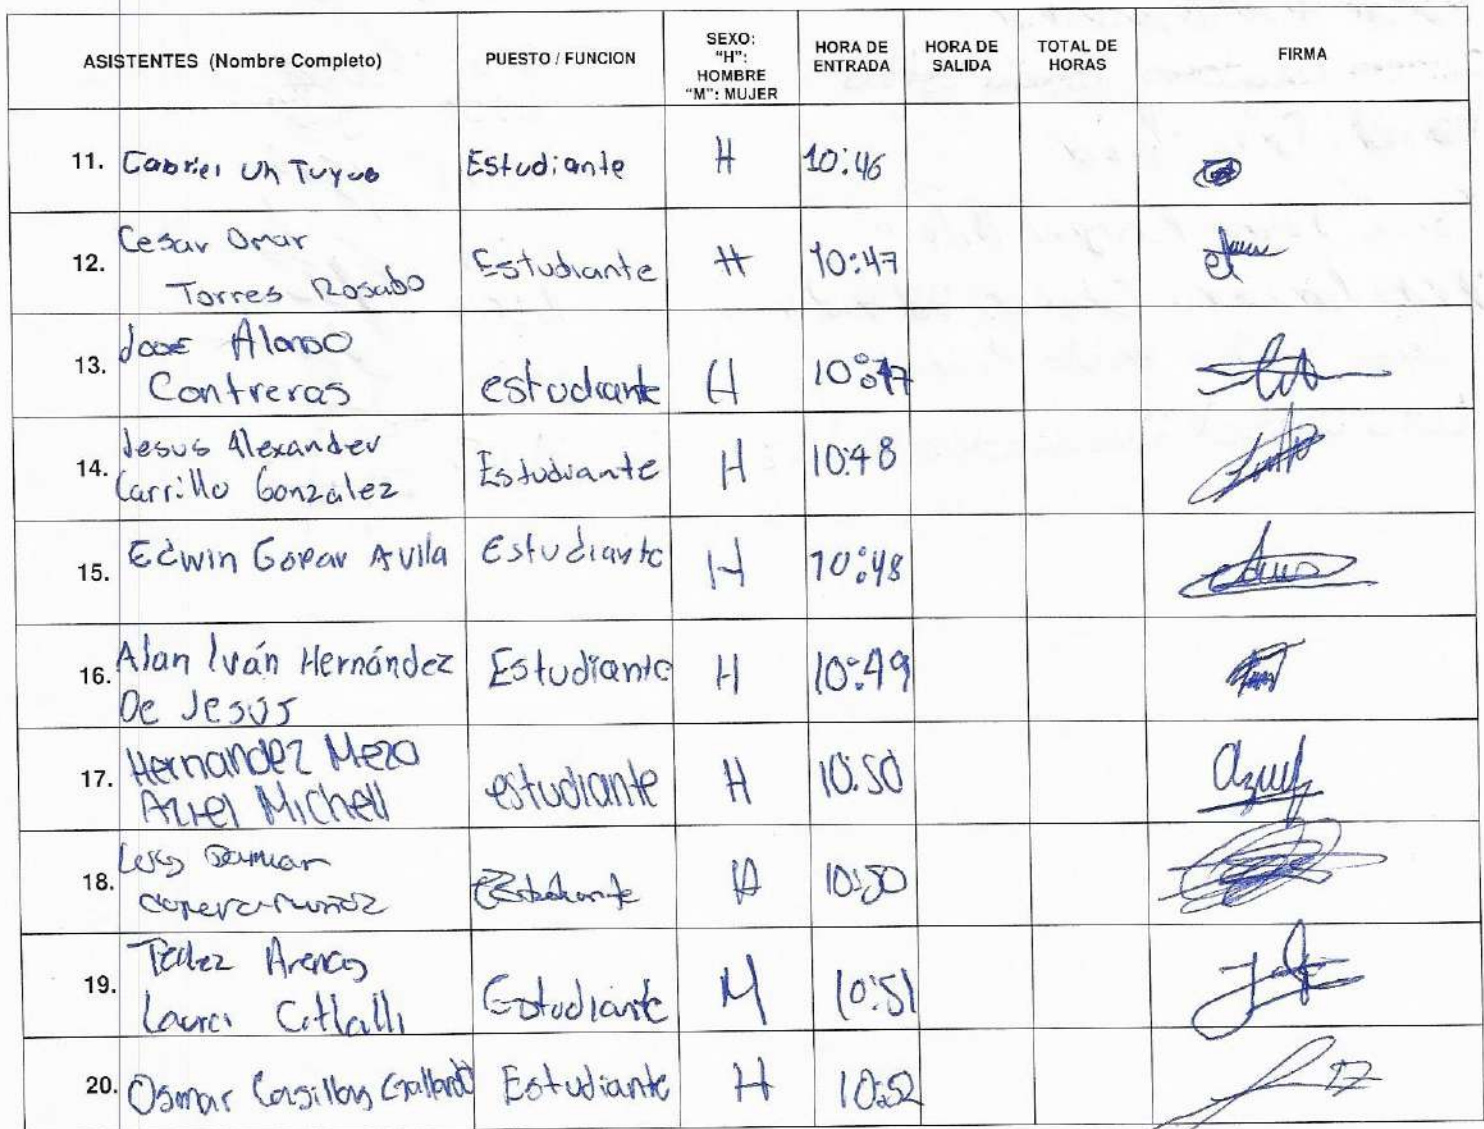 ASISTENTES (Nombre Completo) PUESTO / FUNCION SEXO: "H": HOMBRE "M": MUJER HORA DE ENTRADA HORA DE SALIDA TOTAL DE HORAS FIRMA
11. Gabriel Uh Tuyub Estudiante H 10:46
12. Cesar Omar
Torres Rosado Estudiante H 10:47
13. Jose Alonso
Contreras estudiante H 10:47
14. Jesus Alexander
Carrillo Gonzalez Estudiante H 10:48
15. Edwin Gopar Avila Estudiante H 10:48
16. Alan Iván Hernández
De Jesús Estudiante H 10:49
17. Hernandez Mezo
Azrel Michell estudiante H 10:50
18. Luis Damian
Estudiante H 10:50
19. Tellez Arenas
Laura Citlalli Estudiante M 10:51
20. Osmar Casillas Gallardo Estudiante H 10:52